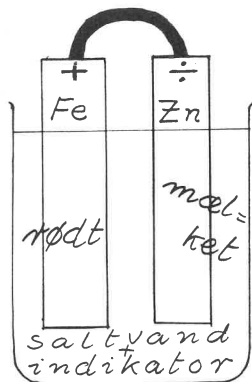 +
÷
Fe
Zn
rødt
mæl=
ket
saltvand
+
indikator